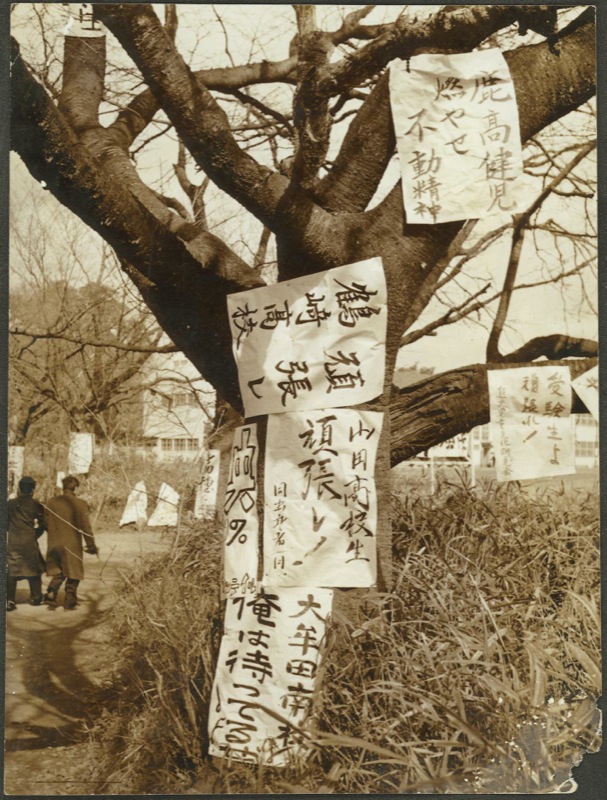 鹿高健児
燃やせ
不動精神
鶴崎高校
頑張レ
山田高校生
頑張レ!
同出身者一同
%
大牟田南校
俺は待ってる
受験生よ
頑張れ!